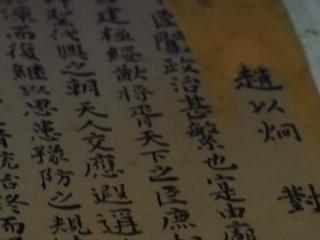 趙以炯 對
臣聞政治甚繁也寔由廟
建極綏猷將胥天下之臣庶
聖代興之朝天人交應遐邇
而復繼以思患豫防之規
終而